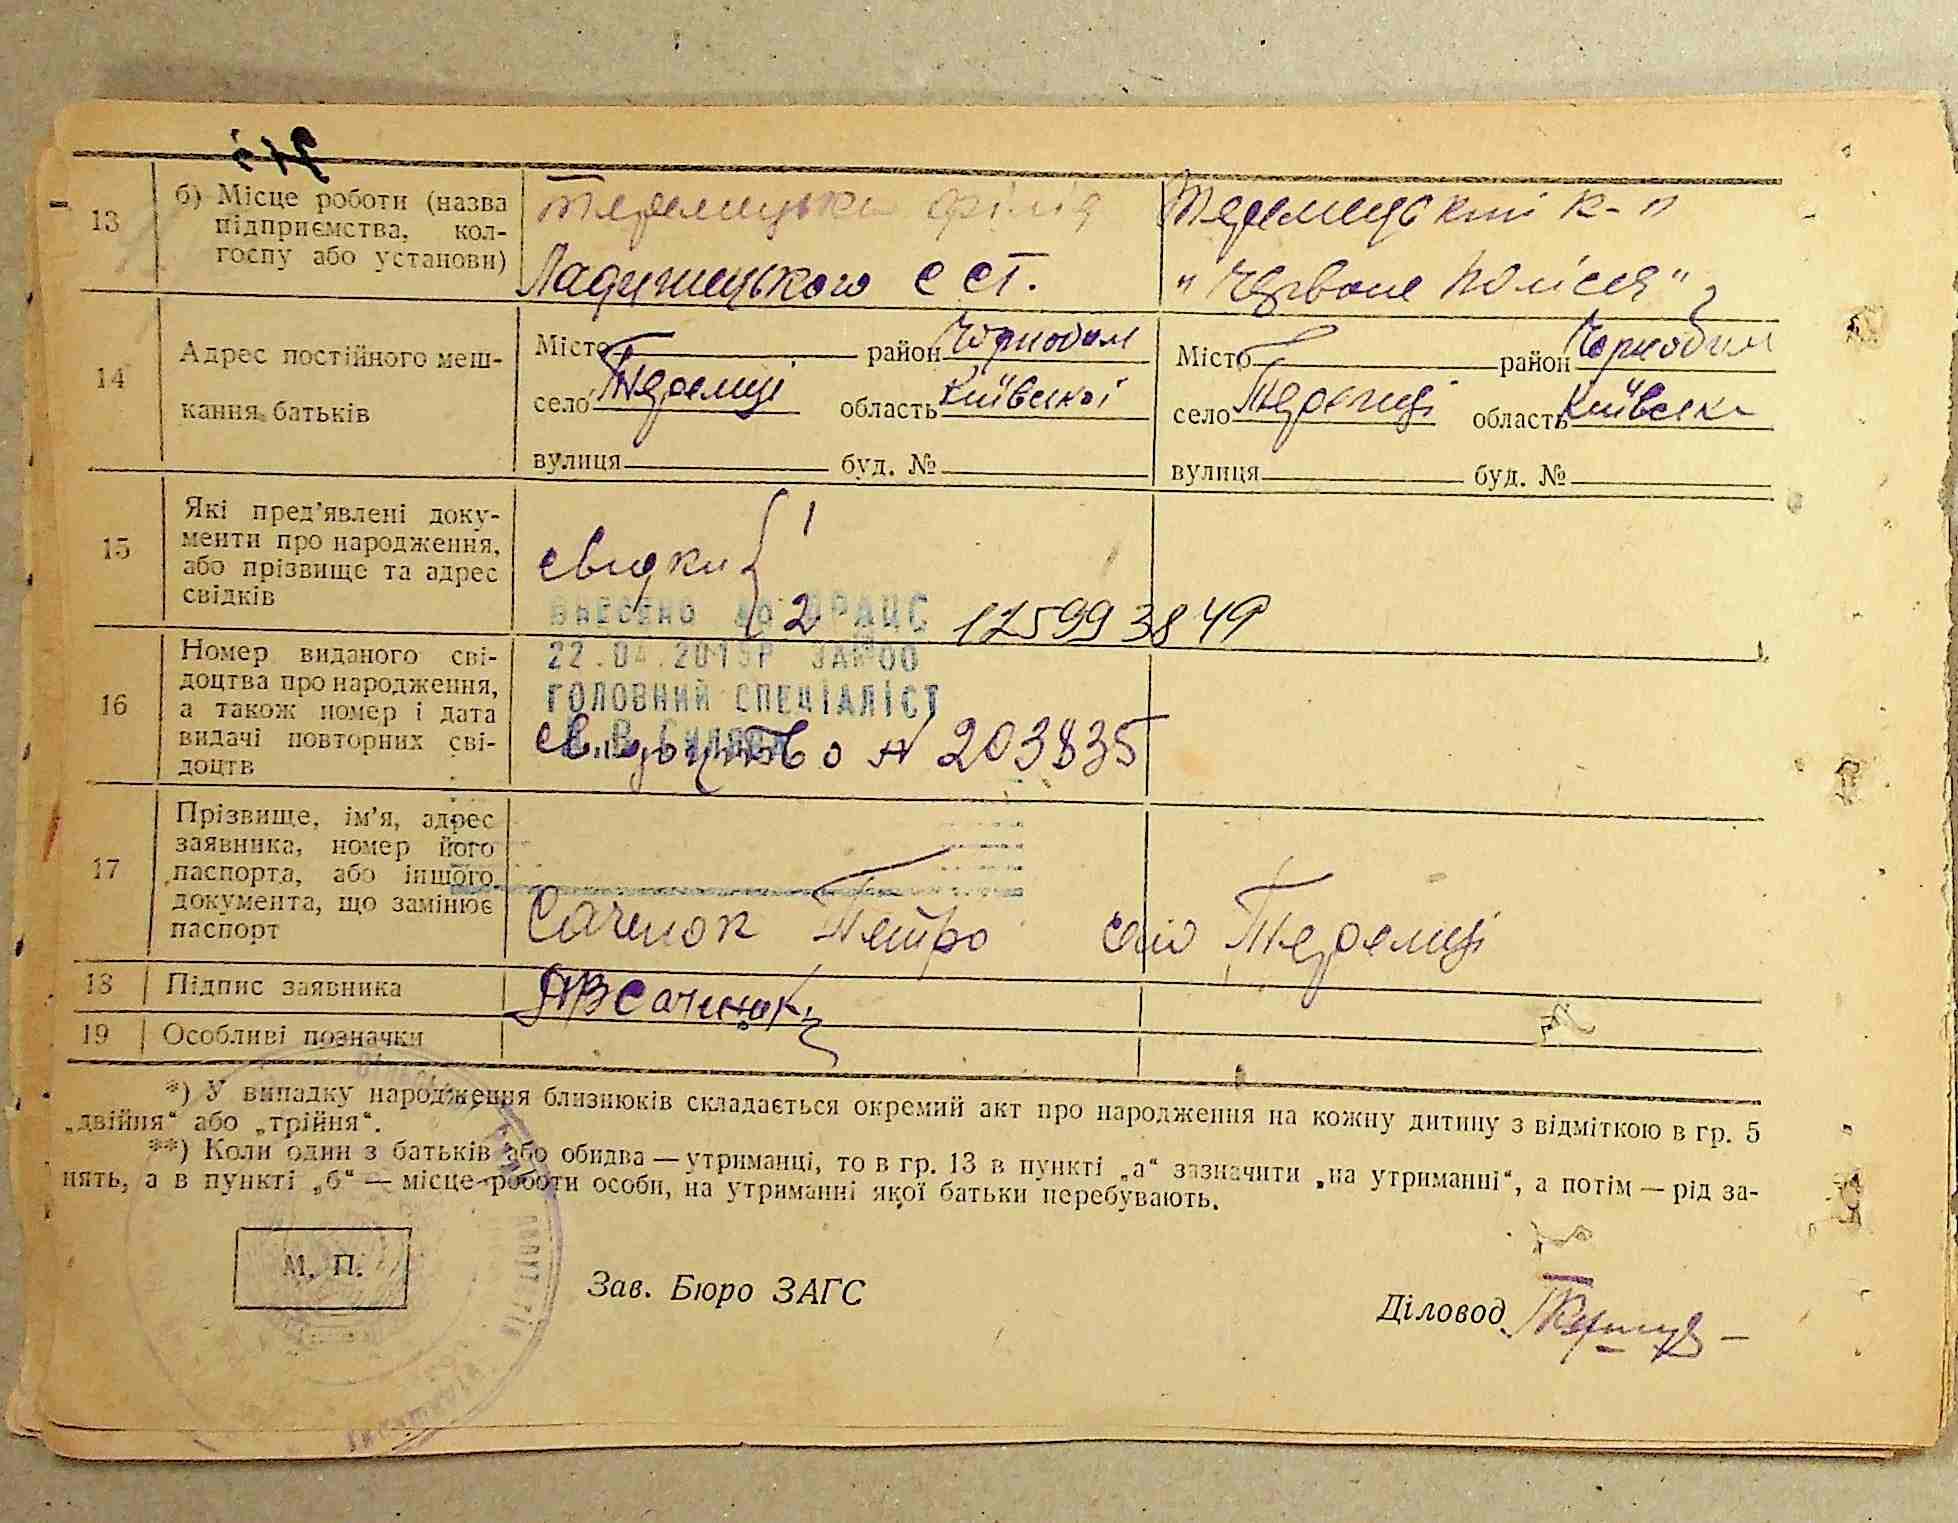 13
б) Місце роботи (назва
підприємства, кол-
госпу або установи)
Теремецька філія
Ладижицького с ст.
Теремецький к-п
"Червоне Полісся"
14
Адрес постійного меш-
кання батьків
Місто район Чорнобил
село Теремці область Київської
вулиця буд. №
Місто район Чорнобил
село Теремці область Київська
вулиця буд. №
15
Які пред'явлені доку-
менти про народження,
або прізвище та адрес
свідків
свідки { 1
2
ВНЕСЕНО ДО ДРАЦС 175993849
22.04.2015Р
ГОЛОВНИЙ СПЕЦІАЛІСТ
16
Номер виданого сві-
доцтва про народження,
а також номер і дата
видачі повторних сві-
доцтв
свідоцтво № 203835
17
Прізвище, ім'я, адрес
заявника, номер його
паспорта, або іншого
документа, що замінює
паспорт
Саченок Петро село Теремці
18 Підпис заявника
ПВСаченок
19 Особливі позначки
*) У випадку народження близнюків складається окремий акт про народження на кожну дитину з відміткою в гр. 5
„двійня“ або „трійня“.
**) Коли один з батьків або обидва — утриманці, то в гр. 13 в пункті „а“ зазначити „на утриманні“, а потім — рід за-
нять, а в пункті „б“ — місце роботи особи, на утриманні якої батьки перебувають.
М. П.
Зав. Бюро ЗАГС
Діловод